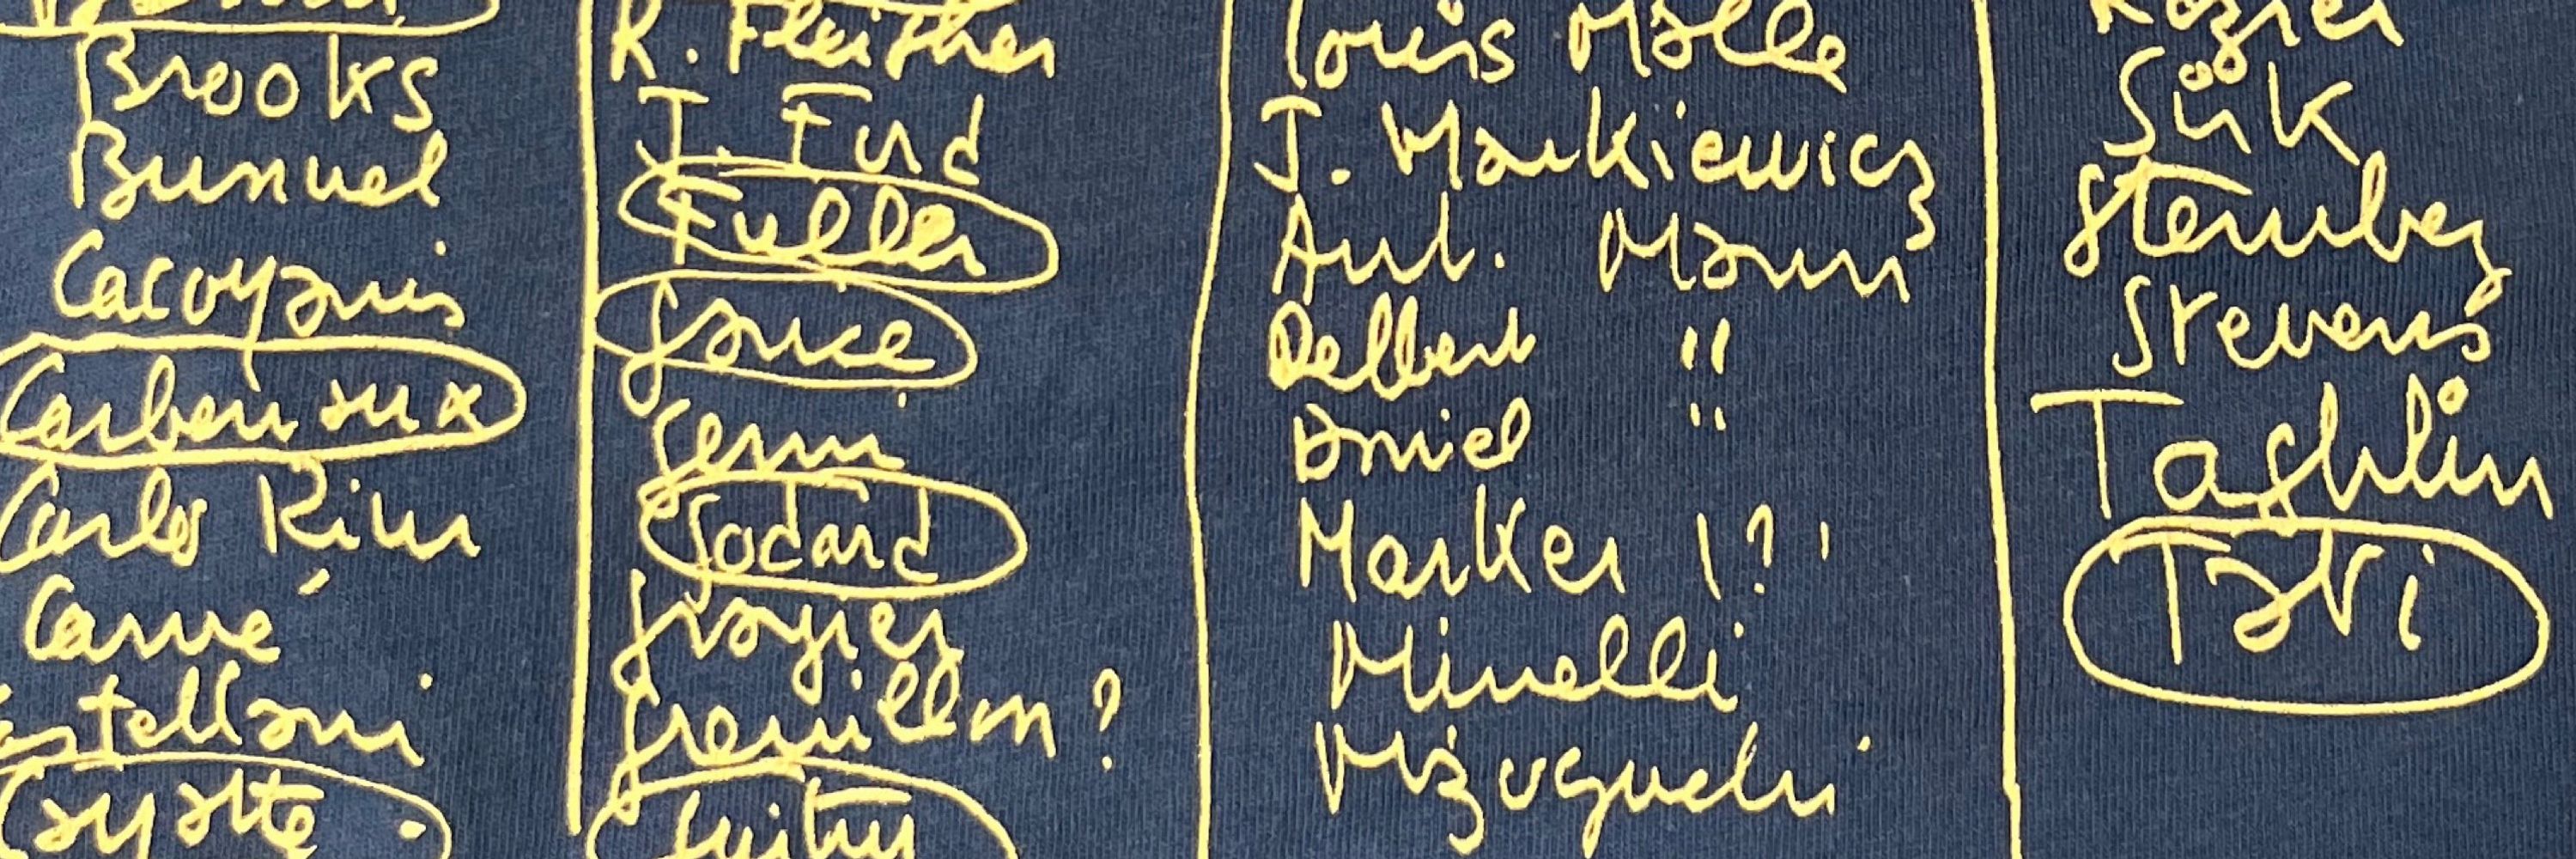 Brooks
Bunuel
Cacoyanis
Carbonaux
Carlo Rim
Carné
Castellani
Cayatte
R. Fleisher
J. Ford
Fuller
Gance
Germi
Godard
Grangier
Gremillon ?
Guitry
Louis Malle
J. Mankiewicz
Ant. Mann
Delbert "
Daniel "
Marker !?!
Minelli
Mizoguchi
Rozier
Sirk
Sternberg
Stevens
Tashlin
Tati